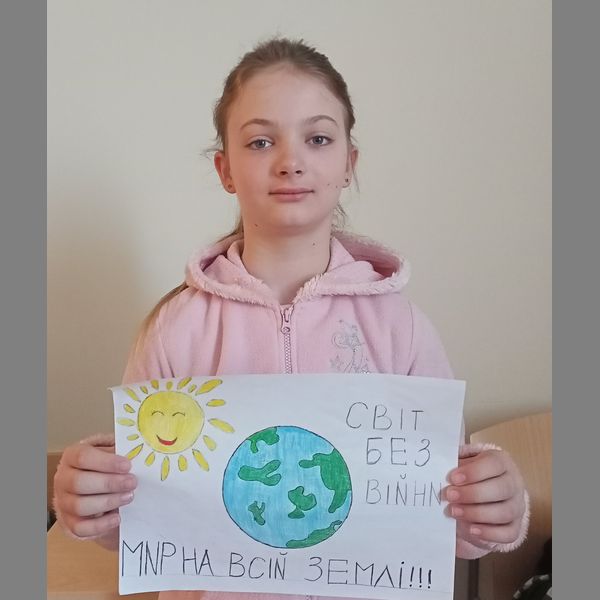 СВІТ
БЕЗ
ВІЙНИ
МИР НА ВСІЙ ЗЕМЛІ!!!